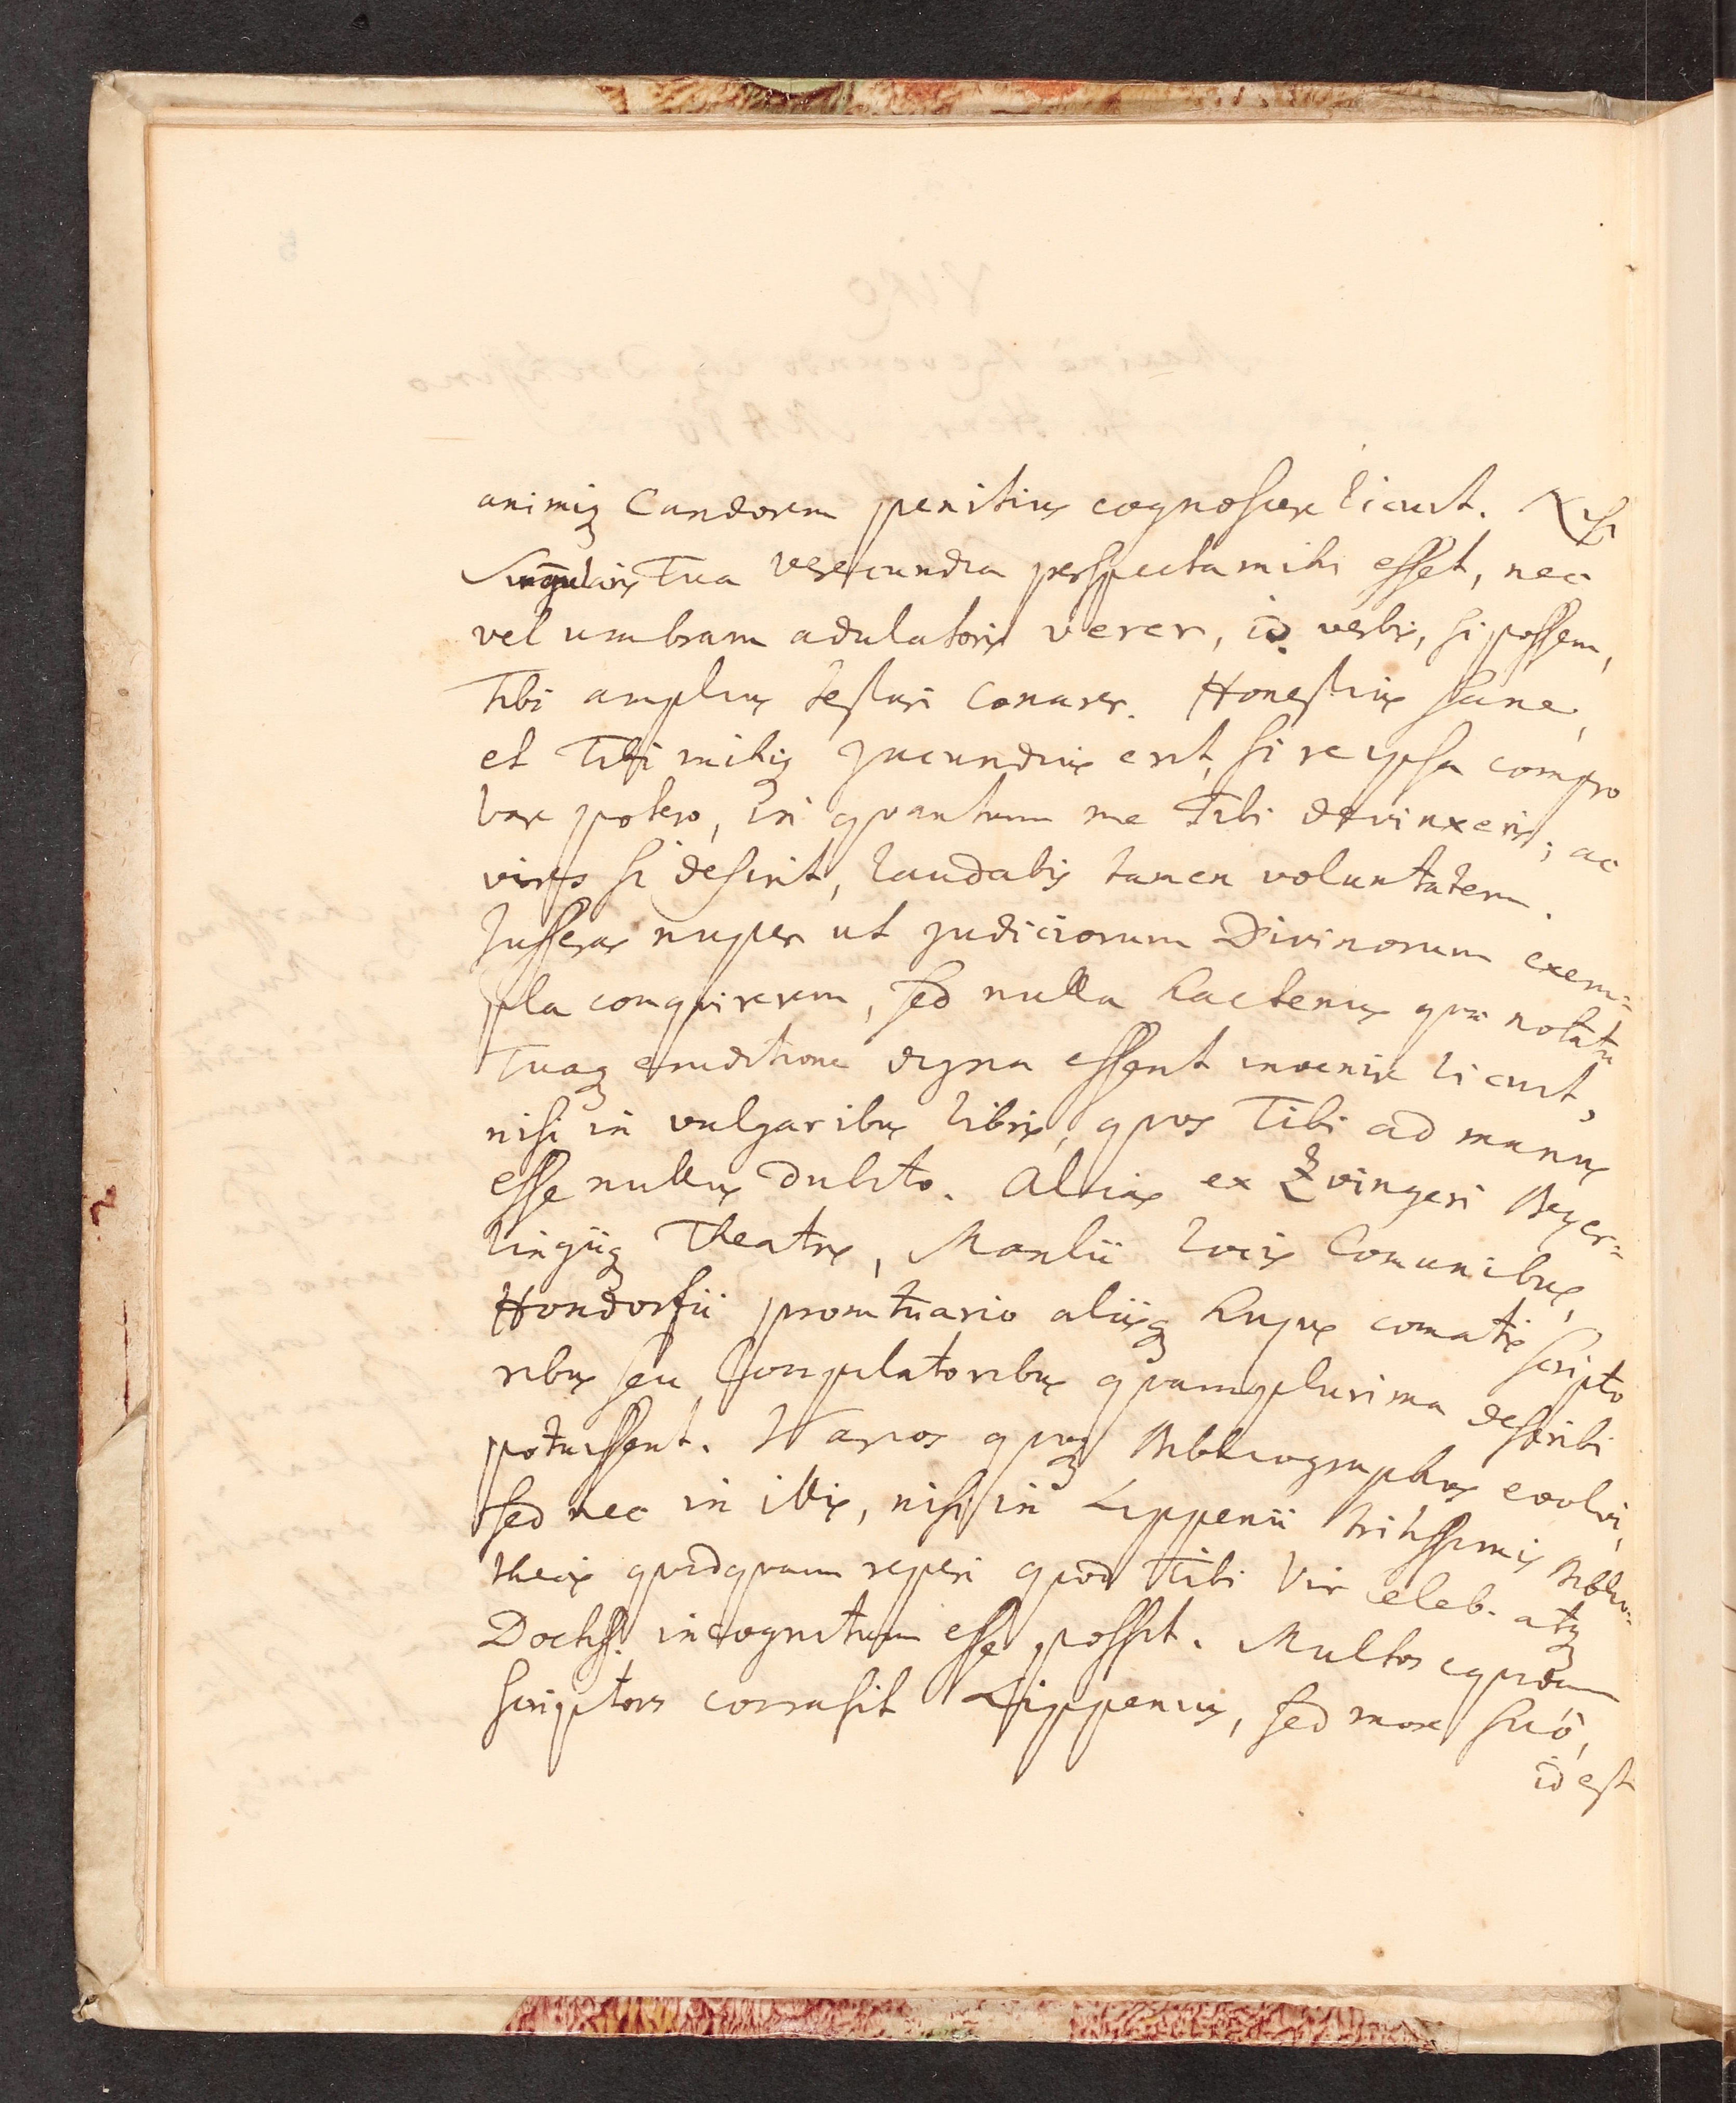 animiq; Candorem penitius cognoscere licuit. Nisi
Singularis Tua verecundia perspecta mihi esset, nec
vel umbram adulatoris vererer, id verbis, si possem,
Tibi amplius testari conarer. Honestius sane,
et Tibi mihiq; jucundius erit, si re ipsa compro
bare potero, in qvantum me Tibi devinxeris; ac
vires si desint, laudabis tamen voluntatem.
Jusseras nuper ut judiciorum Divinorum exem-
pla conqvirerem, sed nulla hactenus qvæ notatu
Tuaq; eruditione digna essent invenire licuit,
nisi in vulgaribus libris, qvos Tibi ad manus
esse nullus dubito. Alias ex Zvingeri Beyer-
lingiiq; Theatris, Manlii locis Comunibus,
Hondorfii promtuario aliisq; hujus comatis scripto
ribus seu Compilatoribus qvamplurima describi
potuissent. Varios qvoq; Bibliographos evolvi,
sed nec in illis, nisi in Lippenii tritissimis Biblio-
thecis qvidqvam reperi qvod Tibi Vir Celeb. atq;
Doctiss. incognitum esse possit. Multos eqvidem
scriptores corrasit Lippenius, sed more suô,
id est